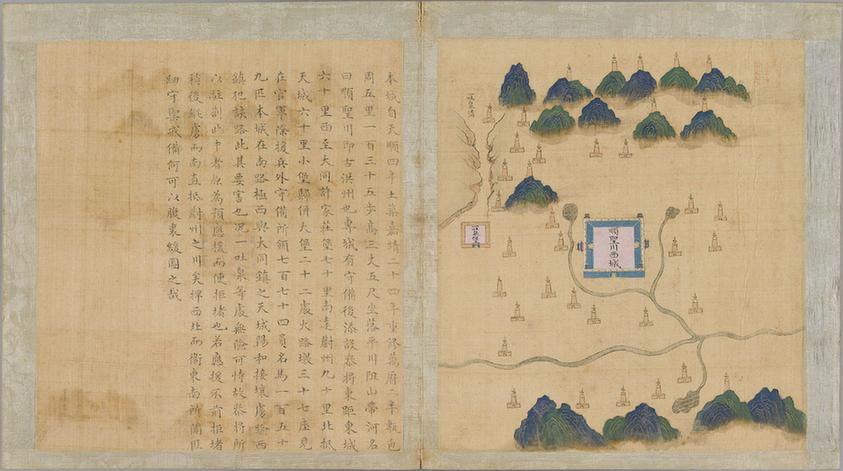 本城自天順四年土築嘉靖二十四年重修萬曆二年甎包
周五里一百三十五步高三丈五尺坐落平川阻山帶河名
曰順聖川即古洪州也專城有守備後添設叅將東距東城
六十里西至大同許家莊堡七十里南達蔚州九十里北抵
天城六十里小堡歸併大堡二十二處火路墩三十七座見
在官軍除援兵外守備所領七百七十四員名馬一百五十
九匹本城在南路極西與大同鎮之天城陽和接壤虜
鎮犯該路此其要害也況一吐泉等處無險可恃故叅將所
以駐劄此中者原為預應援而便拒堵也若應援不前拒堵
稍後縱虜而南直抵蔚州之川矣捍西北而衛東南所關匪
細守禦戒備何可以腹裏緩圖之哉
順聖川西城